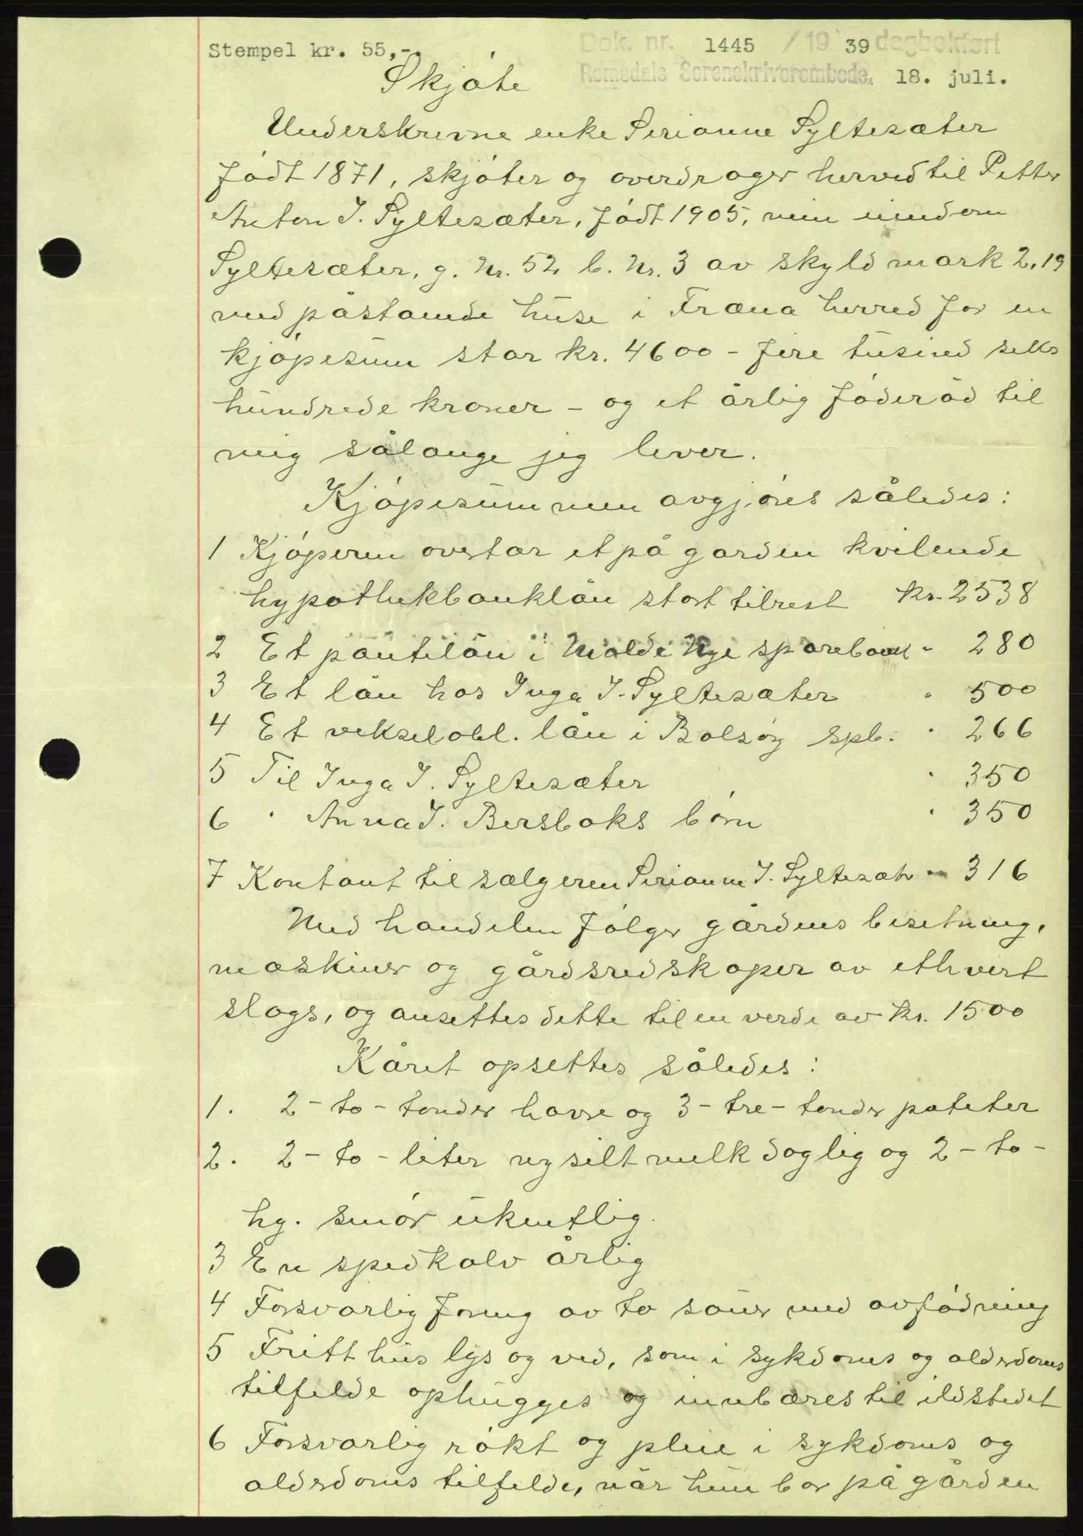 Stempel kr. 55,-.
Dok. nr. 1445 / 1939 dagbokført
Romsdals Sorenskriverembede, 18. juli.
Skjøte
Underskrevne enke Serianne Syltesæter
født 1871, skjøter og overdrager herved til Petter
Anton I. Syltesæter, født 1905, min eiendom
Syltesæter, g. Nr. 52 b. Nr. 3 av skyld mark 2,19
med påståendе huse i Fræna herred for en
kjøpesum stor kr. 4600 - fire tusined seks
hundrede kroner - og et årlig føderåd til
mig sålange jeg lever.
Kjøpesummen avgjøres således:
1 Kjøperen overtar et på garden hvilende
hypothekbanklån stort tilrest kr. 2538
2 Et pantelån i Molde Nye sparebank " 280
3 Et lån hos Inga I. Syltesæter " 500
4 Et vekselobl. lån i Bolsøy spb. " 266
5 Til Inga I. Syltesæter " 350
6 " Anna I. Bersboks børn " 350
7 Kontant til sælgeren Serianne I. Syltesæt " 316
Med handelen følger gårdens besetning,
maskiner og gårdsredskaper av ethvert
slags, og ansettes dette til en verde av kr. 1500
Kåret opsettes således:
1. 2 - to - tønder havre og 3 - tre - tønder poteter
2. 2 - to - liter nysilt melk daglig og 2 - to -
hg. smør ukentlig.
3 En spedkalv årlig
4 Forsvarlig foring av to sauer med avfødning
5 Fritt hus lys og ved, som i sykdoms og alderdoms
tilfelde ophugges og innbæres til ildstedet
6 Forsvarlig røkt og pleie i sykdoms og
alderdoms tilfelde, når hun bor på gården